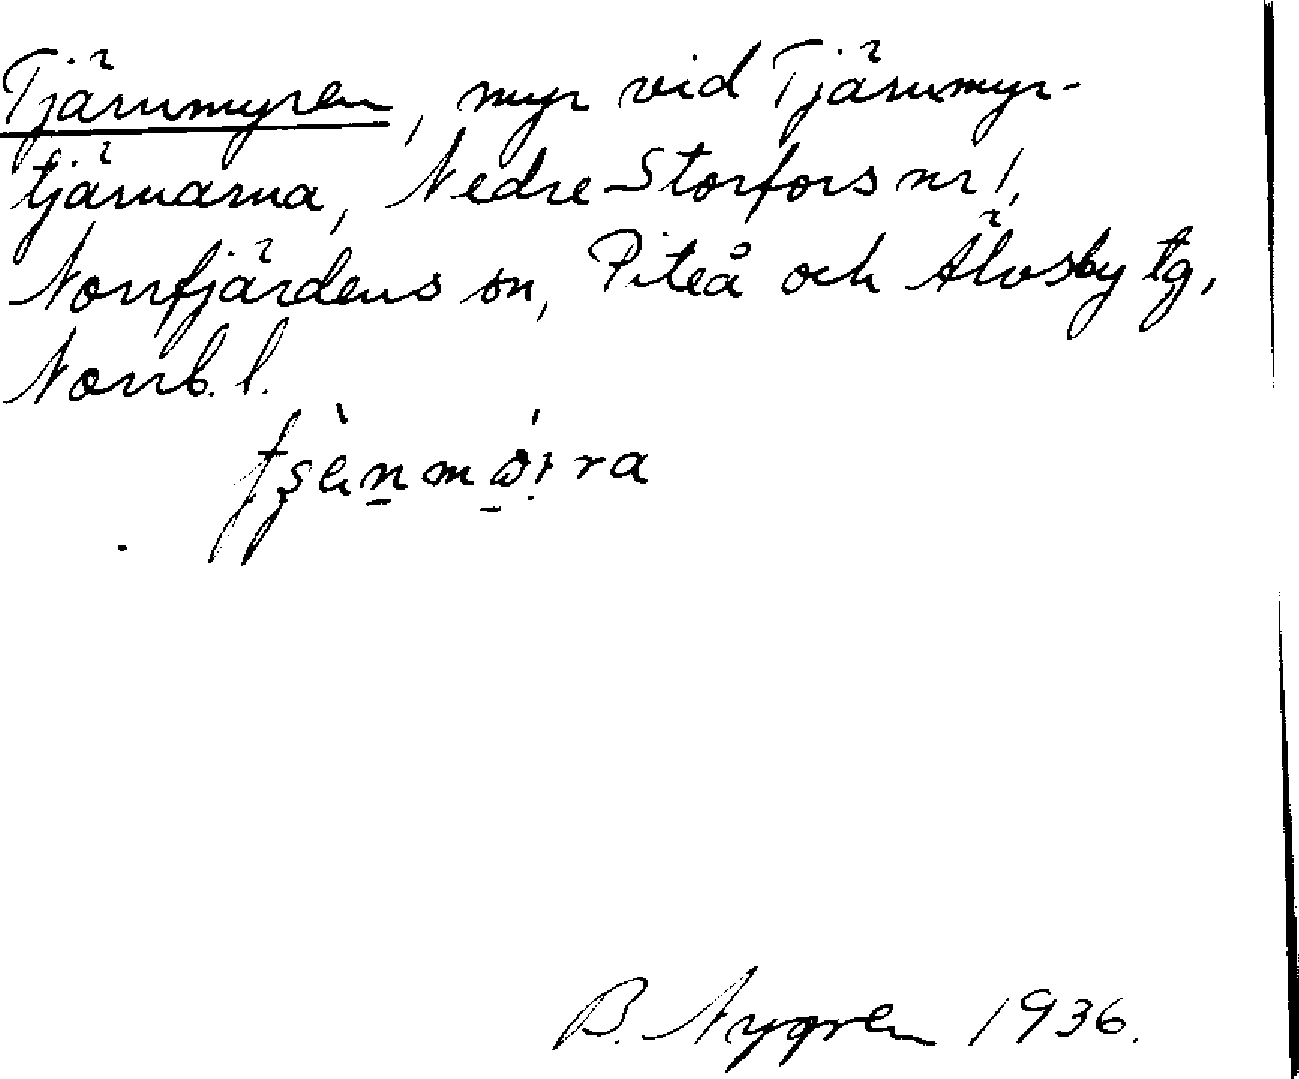 Tjärnmyren, myr vid Tjärnmyr-
tjärnarna, Nedre Storfors nr 1,
Norrfjärdens sn, Piteå och Älvsby tg,
Norrb. l.
B. Nygren 1936.